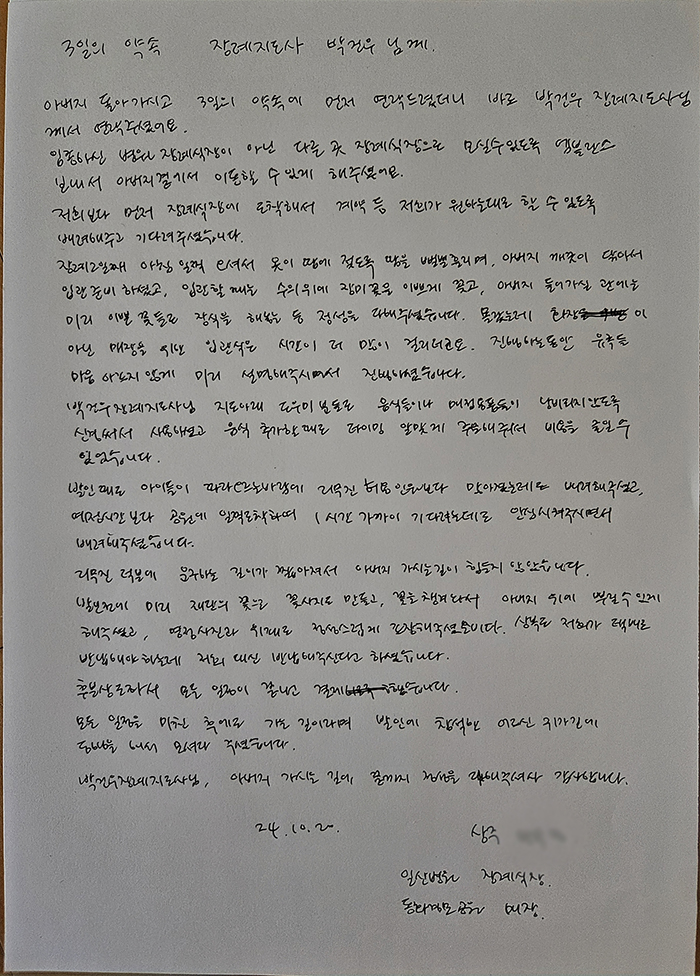 3일의 약속 장례지도사 박건우 님께.
아버지 돌아가시고 3일의 약속에 먼저 연락드렸더니 바로 박건우 장례지도사님
께서 연락주셨어요.
임종하신 병원 장례식장이 아닌 다른 곳 장례식장으로 모실수 있도록 엠블란스
보내서 아버지곁에서 이동할 수 있게 해주셨어요.
저희보다 먼저 장례식장에 도착해서 계약 등 저희가 원하는대로 할 수 있도록
배려해주고 기다려주셨습니다.
장례2일째 아침 일찍 오셔서 옷이 땀에 젖도록 땀을 뻘뻘흘리며, 아버지 깨끗이 닦아서
입관 준비 하셨고, 입관할 때는 수의위에 장미꽃을 이쁘게 꽂고, 아버지 들어가실 관에는
미리 이쁜 꽃들로 장식을 해놓는 등 정성을 다해주셨습니다. 몰랐는데 화장 이
아닌 매장을 위한 입관식은 시간이 더 많이 걸리더군요. 진행하는동안 유족들
마음 아프지 않게 미리 설명해주시면서 진행하셨습니다.
박건우장례지도사님 지도아래 도우미분들도 음식들이나 매점용품들이 낭비되지않도록
신경써서 사용해보고 음식 추가할때도 타이밍 알맞게 주문해줘서 비용을 줄일수
있었습니다.
발인때도 아이들이 따라 바람에 리무진 허용인원보다 많아졌는데도 배려해주셨고,
예정시간보다 공원에 일찍도착하여 1시간 가까이 기다렸는데도 안심시켜주시면서
배려해주셨습니다.
리무진 덕분에 운구하는 길이가 짧아져서 아버지 가시는길이 힘들지 않았습니다.
발인전에 미리 재단의 꽃으로 꽃사지도 만들고, 꽃을 챙겨와서 아버지 위에 뿌릴수 있게
해주셨고, 영정사진과 위패도 정성스럽게 포장해주셨습니다. 상복도 저희가 택배로
반납해야하는데 저희 대신 반납해주신다고 하셨습니다.
후불상조라서 모든 일정이 끝나고 결제 했습니다.
모든 일정을 마친 후에도 가는 길이라며 발인에 참석한 어르신 귀가길에
동반을 해서 모셔다 주셨습니다.
박건우장례지도사님, 아버지 가시는 길에 끝까지 최선을 다해주셔서 감사합니다.
24.10.20.
상주
일산병원 장례식장.
동화경모공원 매장.